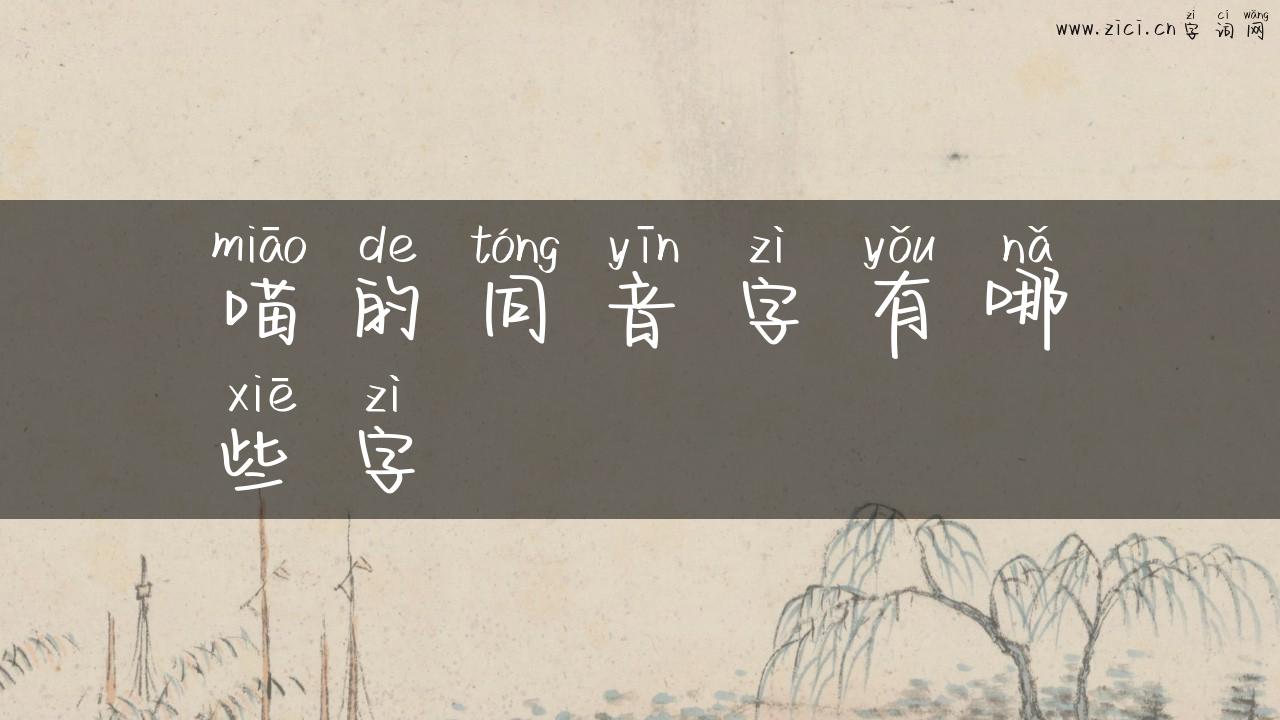 zì cí wǎng
www.zici.cn 字词网
miāo de tóng yīn zì yǒu nǎ
喵的同音字有哪
xiē zì
些字